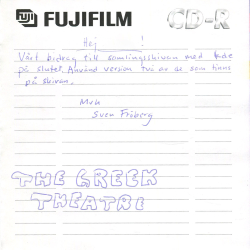 FUJIFILM CD-R
Hej !
Vårt bidrag till samlingsskivan med
på slutet. Använd version två av de som finns
på skivan.
Mvh
Sven Fröberg
THE GREEK
THEATRE